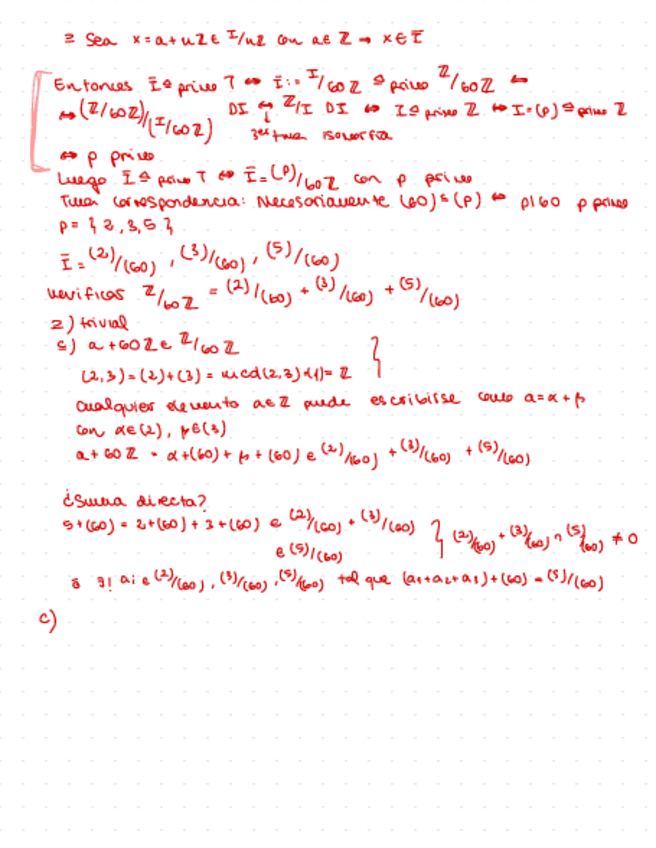 ⊇ Sea x = a + nℤ ∈ I/nℤ con a ∈ ℤ ⇒ x ∈ Ī
Entonces Ī ⊴ primo T ⇔ Ī := I/60ℤ ⊴ primo ℤ/60ℤ ⇔
⇔ (ℤ/60ℤ)/(I/60ℤ) DI ⇔ ℤ/I DI ⇔ I ⊴ primo ℤ ⇔ I = (p) ⊴ primo ℤ
3er tma isomorfía
⇔ p primo
Luego Ī ⊴ primo T ⇔ Ī = (p)/60ℤ con p primo
Tma correspondencia: Necesariamente (60) ⊆ (p) ⇔ p|60 p primo
p = { 2, 3, 5 }
Ī = (2)/(60) , (3)/(60) , (5)/(60)
Verificar ℤ/60ℤ = (2)/(60) + (3)/(60) + (5)/(60)
⊇) trivial
⊆) a + 60ℤ ∈ ℤ/60ℤ
(2,3) = (2) + (3) = mcd(2,3) (1) = ℤ
cualquier elemento a ∈ ℤ puede escribirse como a = α + β
con α ∈ (2), β ∈ (3)
a + 60ℤ = α + (60) + β + (60) ∈ (2)/(60) + (3)/(60) + (5)/(60)
¿Suma directa?
5 + (60) = 2 + (60) + 3 + (60) ∈ (2)/(60) + (3)/(60) } (2)/(60) + (3)/(60) ∩ (5)/(60) ≠ 0
∈ (5)/(60)
ó ∃! ai ∈ (2)/(60) , (3)/(60) , (5)/(60) tal que (a1 + a2 + a3) + (60) = (5)/(60)
c)